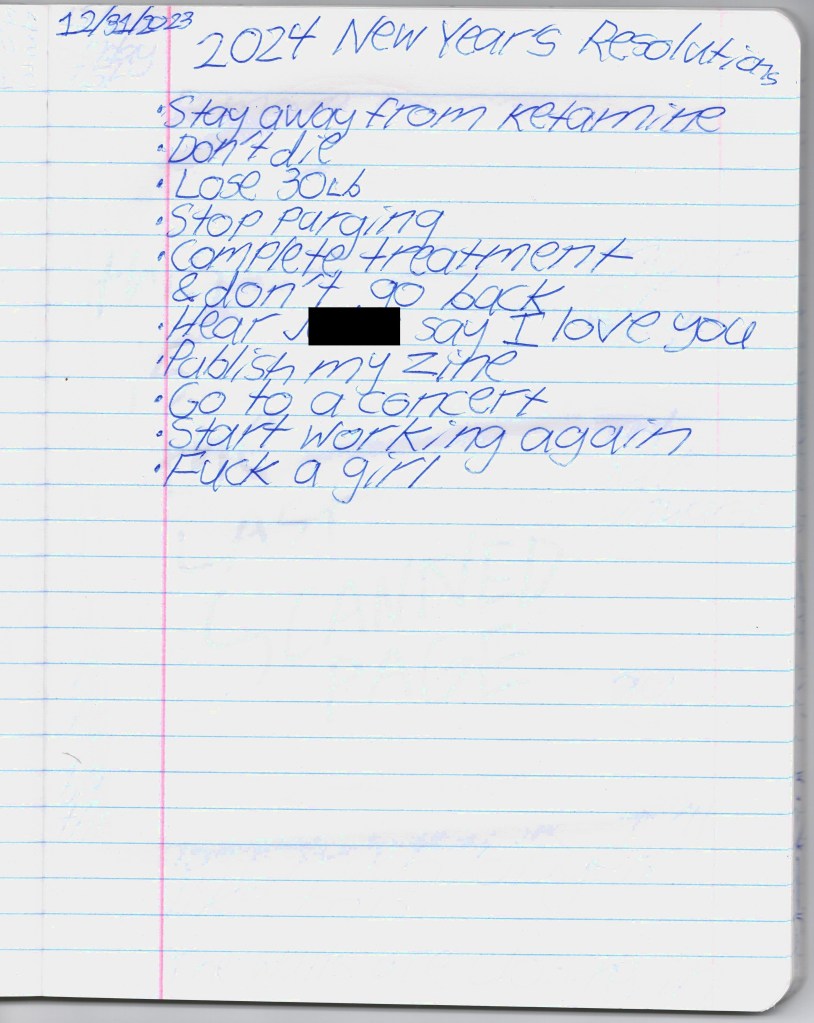 12/31/2023
2024 New Year's Resolutions
• Stay away from ketamine
• Don't die
• Lose 30Lb
• Stop purging
• Complete treatment
& don't go back
• Hear J say I love you
• Publish my zine
• Go to a concert
• Start working again
• Fuck a girl